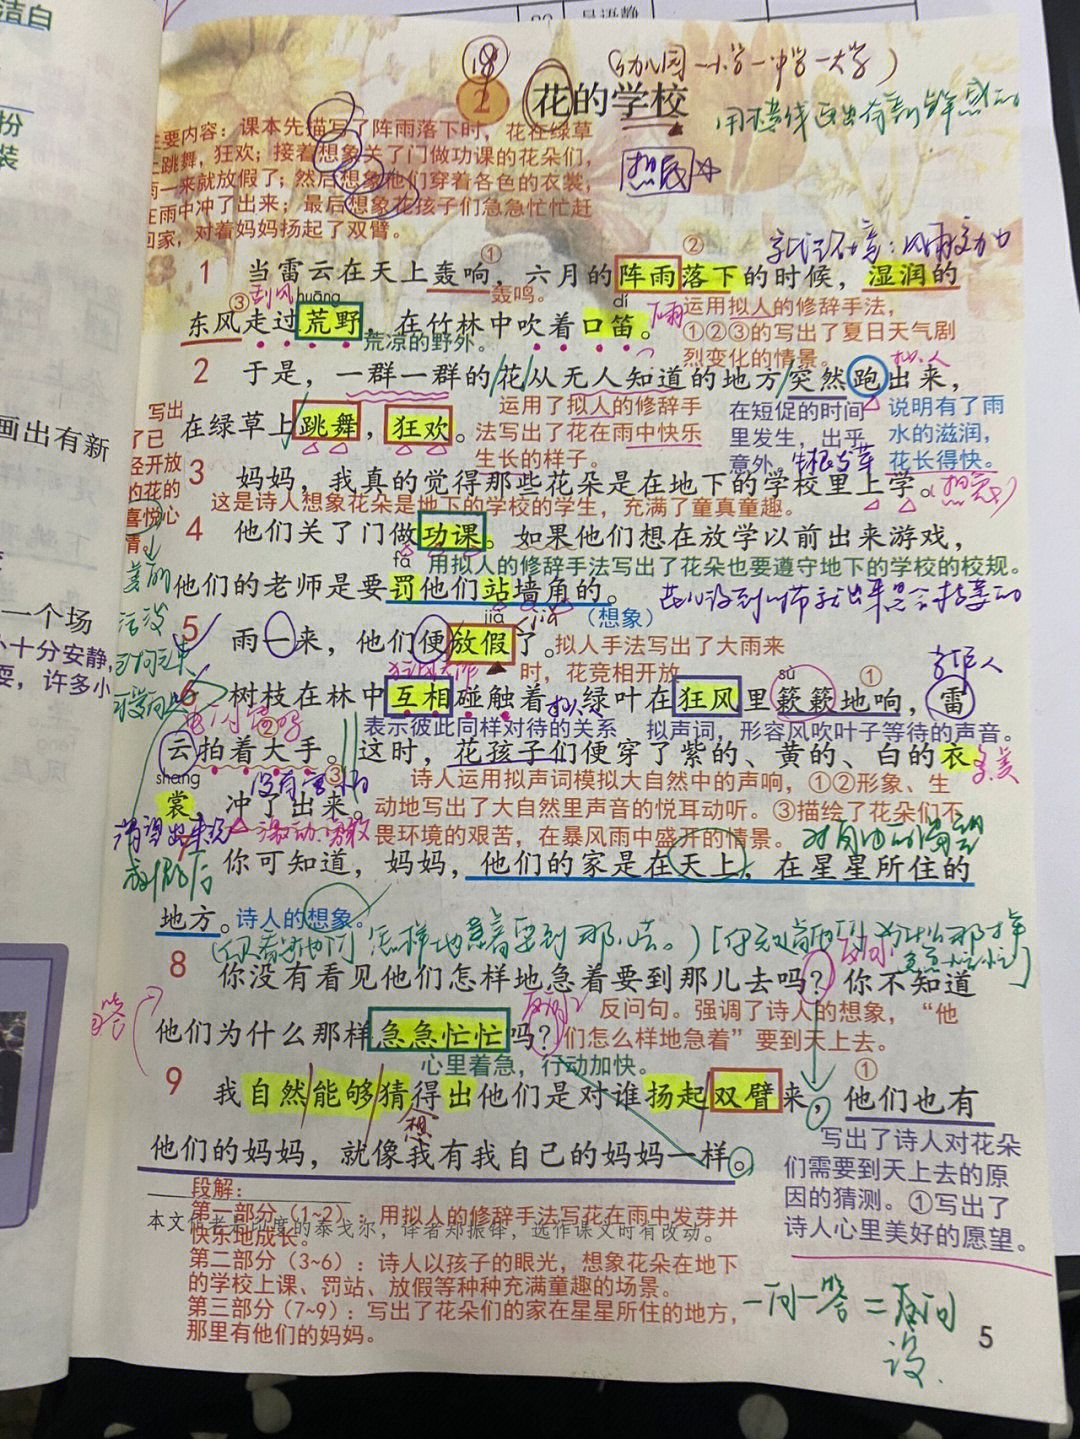 洁白
扮
装
画出有新
一个场
十分安静,
耍,许多小
18
(幼儿园一小学一中学一大学)
2 花的学校
主要内容:课本先描写了阵雨落下时,花在绿草
上跳舞,狂欢;接着想象关了门做功课的花朵们,
雨一来就放假了;然后想象他们穿着各色的衣裳,
在雨中冲了出来;最后想象花孩子们急急忙忙赶
回家,对着妈妈扬起了双臂。
① ②
1 当雷云在天上轰响,六月的阵雨落下的时候,湿润的
轰鸣。
③ 刮风 huāng dí 下雨
运用拟人的修辞手法,
东风走过荒野,在竹林中吹着口笛。
①②③的写出了夏日天气剧
荒凉的野外。
烈变化的情景。 拟人
2 于是,一群一群的花从无人知道的地方突然跑出来,
写出
了已
经开放
的花的
喜悦心
情。
运用了拟人的修辞手
在绿草上跳舞,狂欢。法写出了花在雨中快乐
生长的样子。
在短促的时间
里发生,出乎
意外。
说明有了雨
水的滋润,
花长得快。
3 妈妈,我真的觉得那些花朵是在地下的学校里上学。
这是诗人想象花朵是地下的学校的学生,充满了童真童趣。
4 他们关了门做功课。如果他们想在放学以前出来游戏,
fá 用拟人的修辞手法写出了花朵也要遵守地下的学校的校规。
他们的老师是要罚他们站墙角的。
jià jiǎ (想象)
5 雨一来,他们便放假了。拟人手法写出了大雨来
时,花竞相开放
sù ①
6 树枝在林中互相碰触着,绿叶在狂风里簌簌地响,雷
拟人
表示彼此同样对待的关系 拟声词,形容风吹叶子等待的声音。
②
云拍着大手。这时,花孩子们便穿了紫的、黄的、白的衣
shang ③ 诗人运用拟声词模拟大自然中的声响,①②形象、生
裳,冲了出来。动地写出了大自然里声音的悦耳动听。③描绘了花朵们不
激动、勇敢
畏环境的艰苦,在暴风雨中盛开的情景。
7 你可知道,妈妈,他们的家是在天上,在星星所住的
地方。诗人的想象。
反问
8 你没有看见他们怎样地急着要到那儿去吗?你不知道
反问句。强调了诗人的想象,“他
他们为什么那样急急忙忙吗?们怎么样地急着”要到天上去。
心里着急,行动加快。
①
9 我自然能够猜得出他们是对谁扬起双臂来,他们也有
想
他们的妈妈,就像我有我自己的妈妈一样。
写出了诗人对花朵
们需要到天上去的原
因的猜测。①写出了
诗人心里美好的愿望。
段解:
第一部分(1~2):用拟人的修辞手法写花在雨中发芽并
快乐地成长。
本文作者是印度的泰戈尔,译者郑振铎,选作课文时有改动。
第二部分(3~6):诗人以孩子的眼光,想象花朵在地下
的学校上课、罚站、放假等种种充满童趣的场景。
第三部分(7~9):写出了花朵们的家在星星所住的地方,
那里有他们的妈妈。
一问一答=
设
5